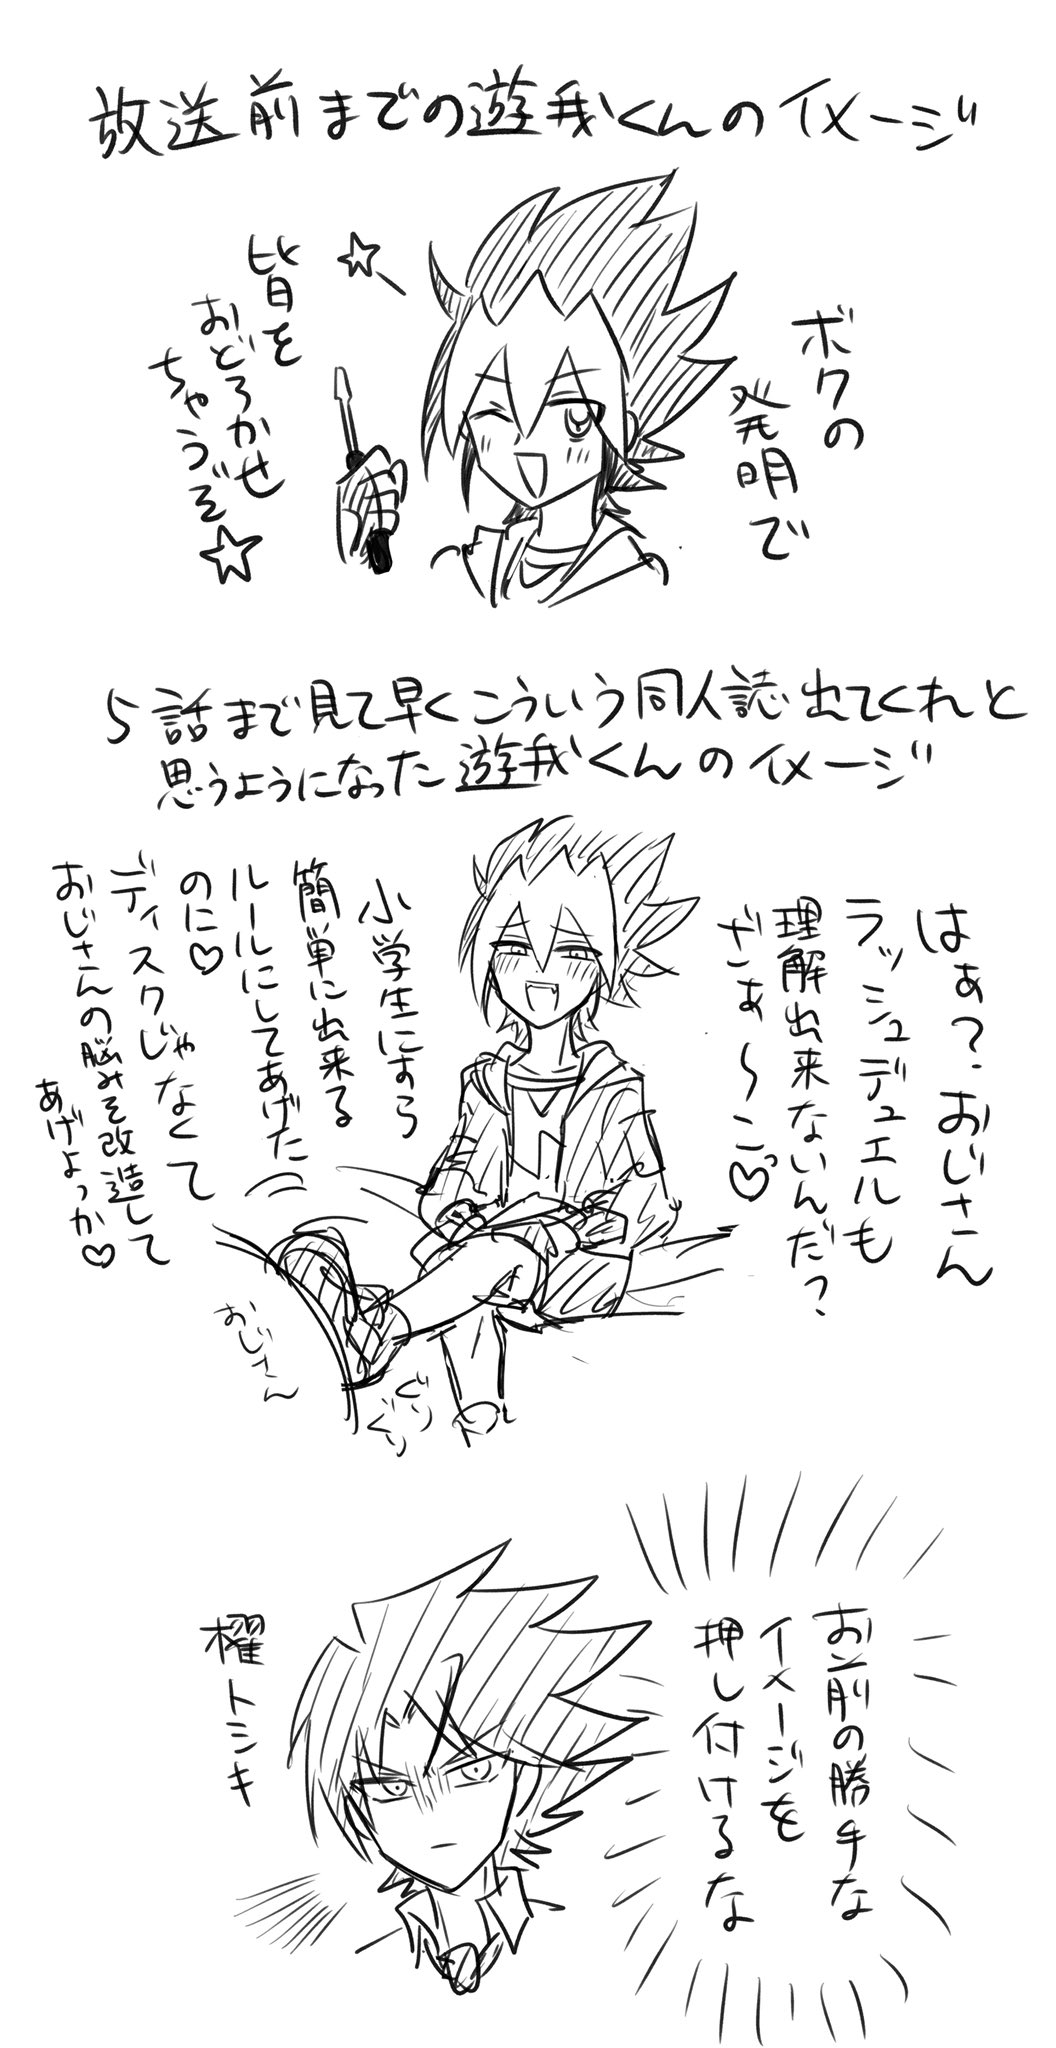 放送前までの遊我くんのイメージ
ボクの
発明で
皆を
おどろかせ
ちゃうぞ☆
5話まで見て早くこういう同人誌出てくれと
思うようになった遊我くんのイメージ
はぁ?おじさん
ラッシュデュエルも
理解出来ないんだ?
ざぁ〜こっ♡
小学生にすら
簡単に出来る
ルールにしてあげた
のに♡
ディスクじゃなくて
おじさんの脳みそ改造して
あげよっか♡
おじさん
ぐりぐり
お前の勝手な
イメージを
押し付けるな
櫂トシキ